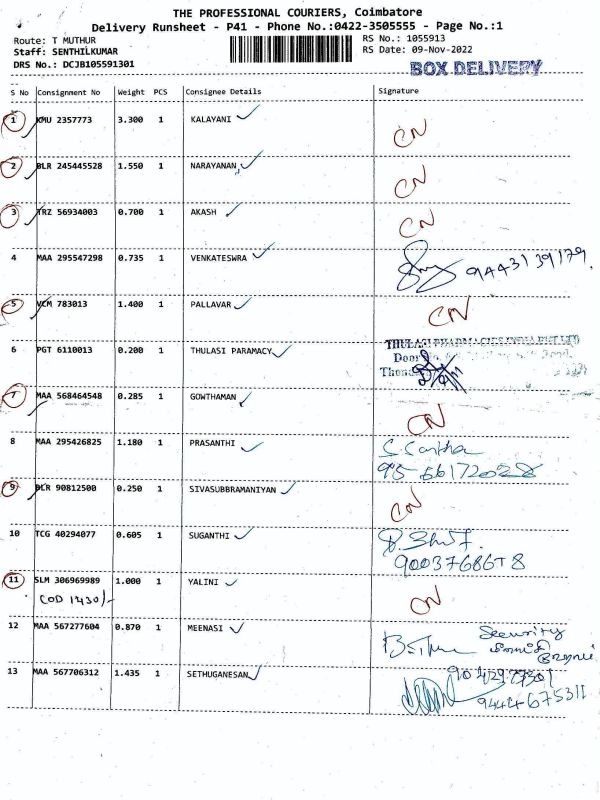 THE PROFESSIONAL COURIERS, Coimbatore
Delivery Runsheet - P41 - Phone No.:0422-3505555 - Page No.:1
Route: T MUTHUR RS No.: 1055913
Staff: SENTHILKUMAR RS Date: 09-Nov-2022
DRS No.: DCJB105591301 BOX DELIVERY
S No Consignment No Weight PCS Consignee Details Signature
1 KMU 2357773 3.300 1 KALAYANI CN
2 BLR 245445528 1.550 1 NARAYANAN CN
3 TRZ 56934003 0.700 1 AKASH CN
4 MAA 295547298 0.735 1 VENKATESWRA 9443139179
5 VCM 783013 1.400 1 PALLAVAR CN
6 PGT 6110013 0.200 1 THULASI PARAMACY THULASI PHARMACIES INDIA PVT LTD
7 MAA 568464548 0.285 1 GOWTHAMAN CN
8 MAA 295426825 1.180 1 PRASANTHI
9 BLR 90812500 0.250 1 SIVASUBBRAMANIYAN CN
10 TCG 40294077 0.605 1 SUGANTHI
11 SLM 306969989 1.000 1 YALINI CN
COD 1430/-
12 MAA 567277604 0.870 1 MEENASI Security
13 MAA 567706312 1.435 1 SETHUGANESAN
9444675311